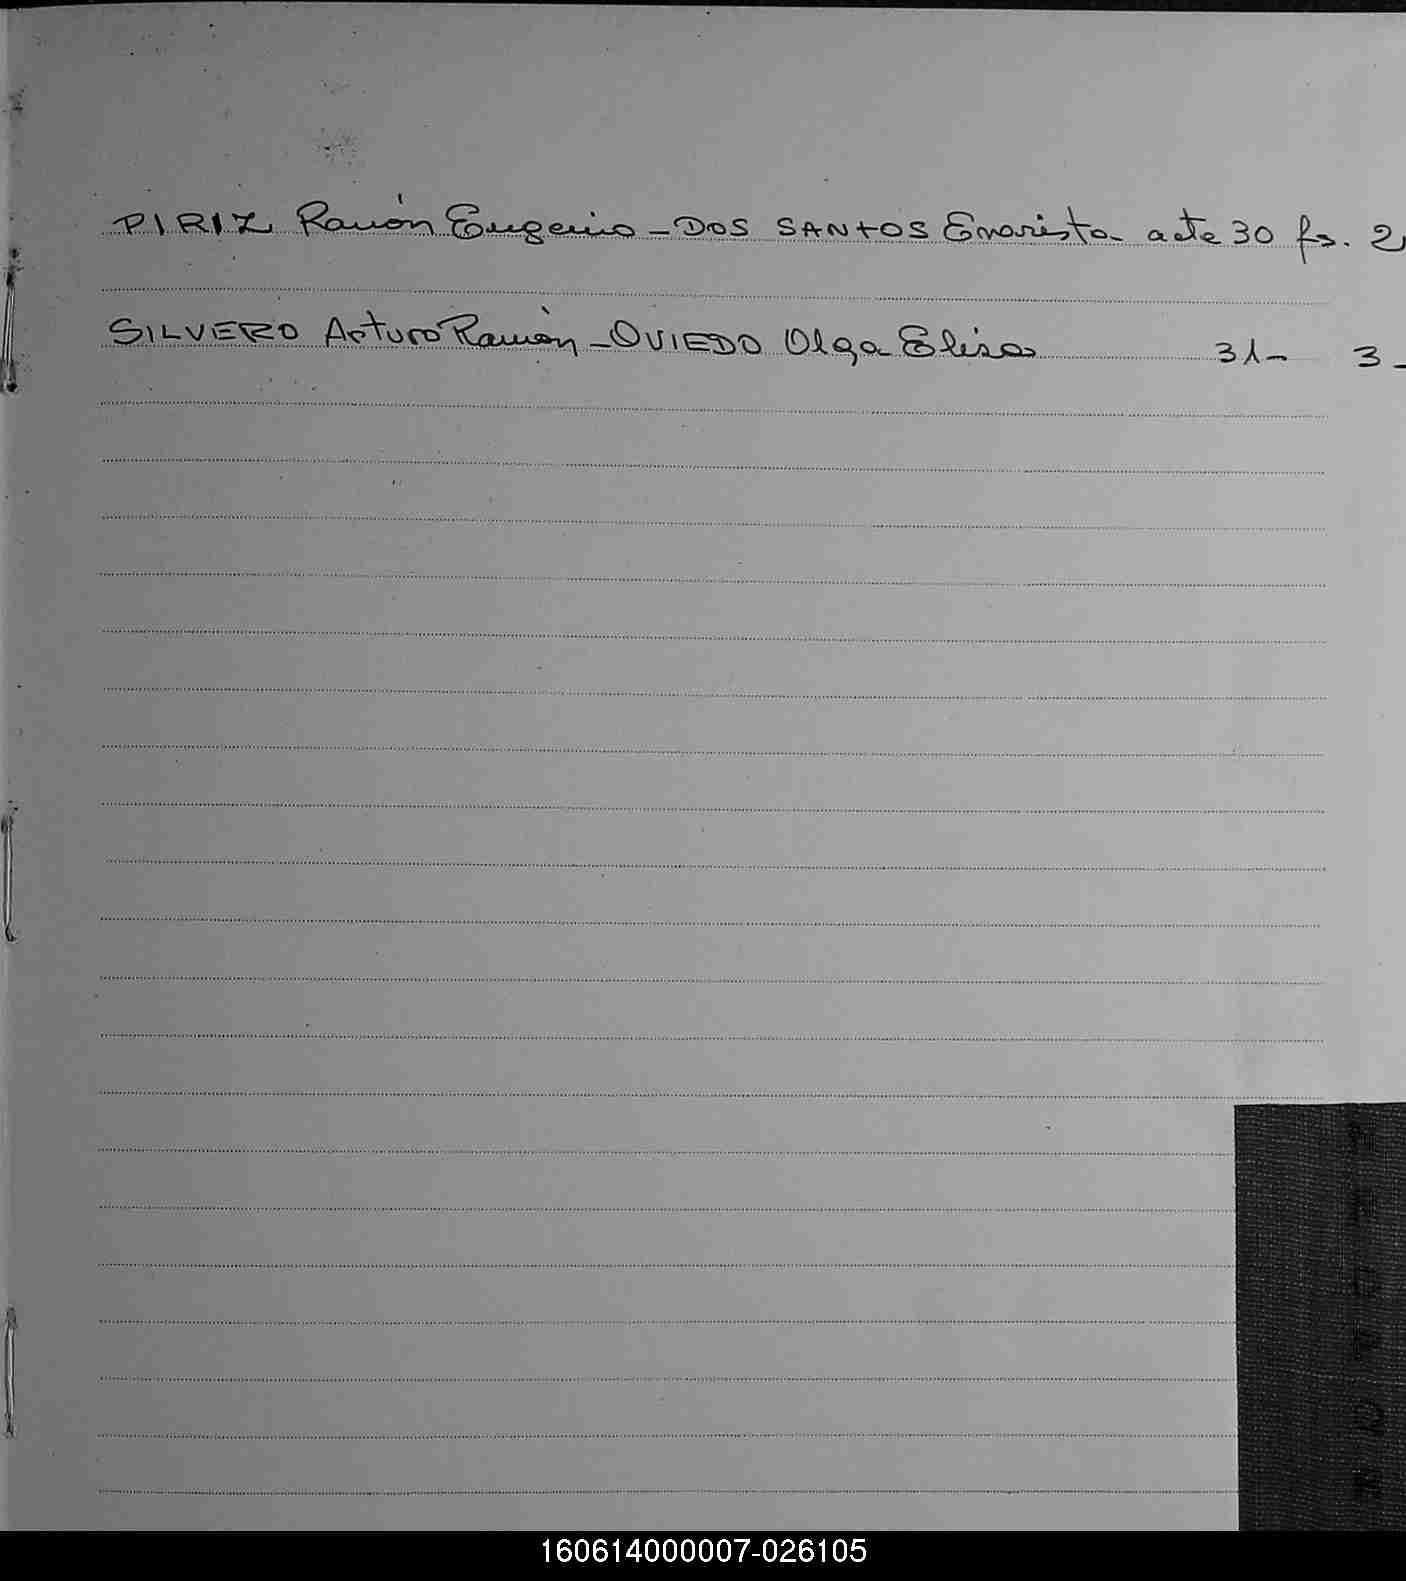 PIRIZ Ramón Eugenio - DOS SANTOS Evarista - acta 30 fs. 2
SILVERO Arturo Ramón - OVIEDO Olga Elisa 31 - 3 -
160614000007-026105